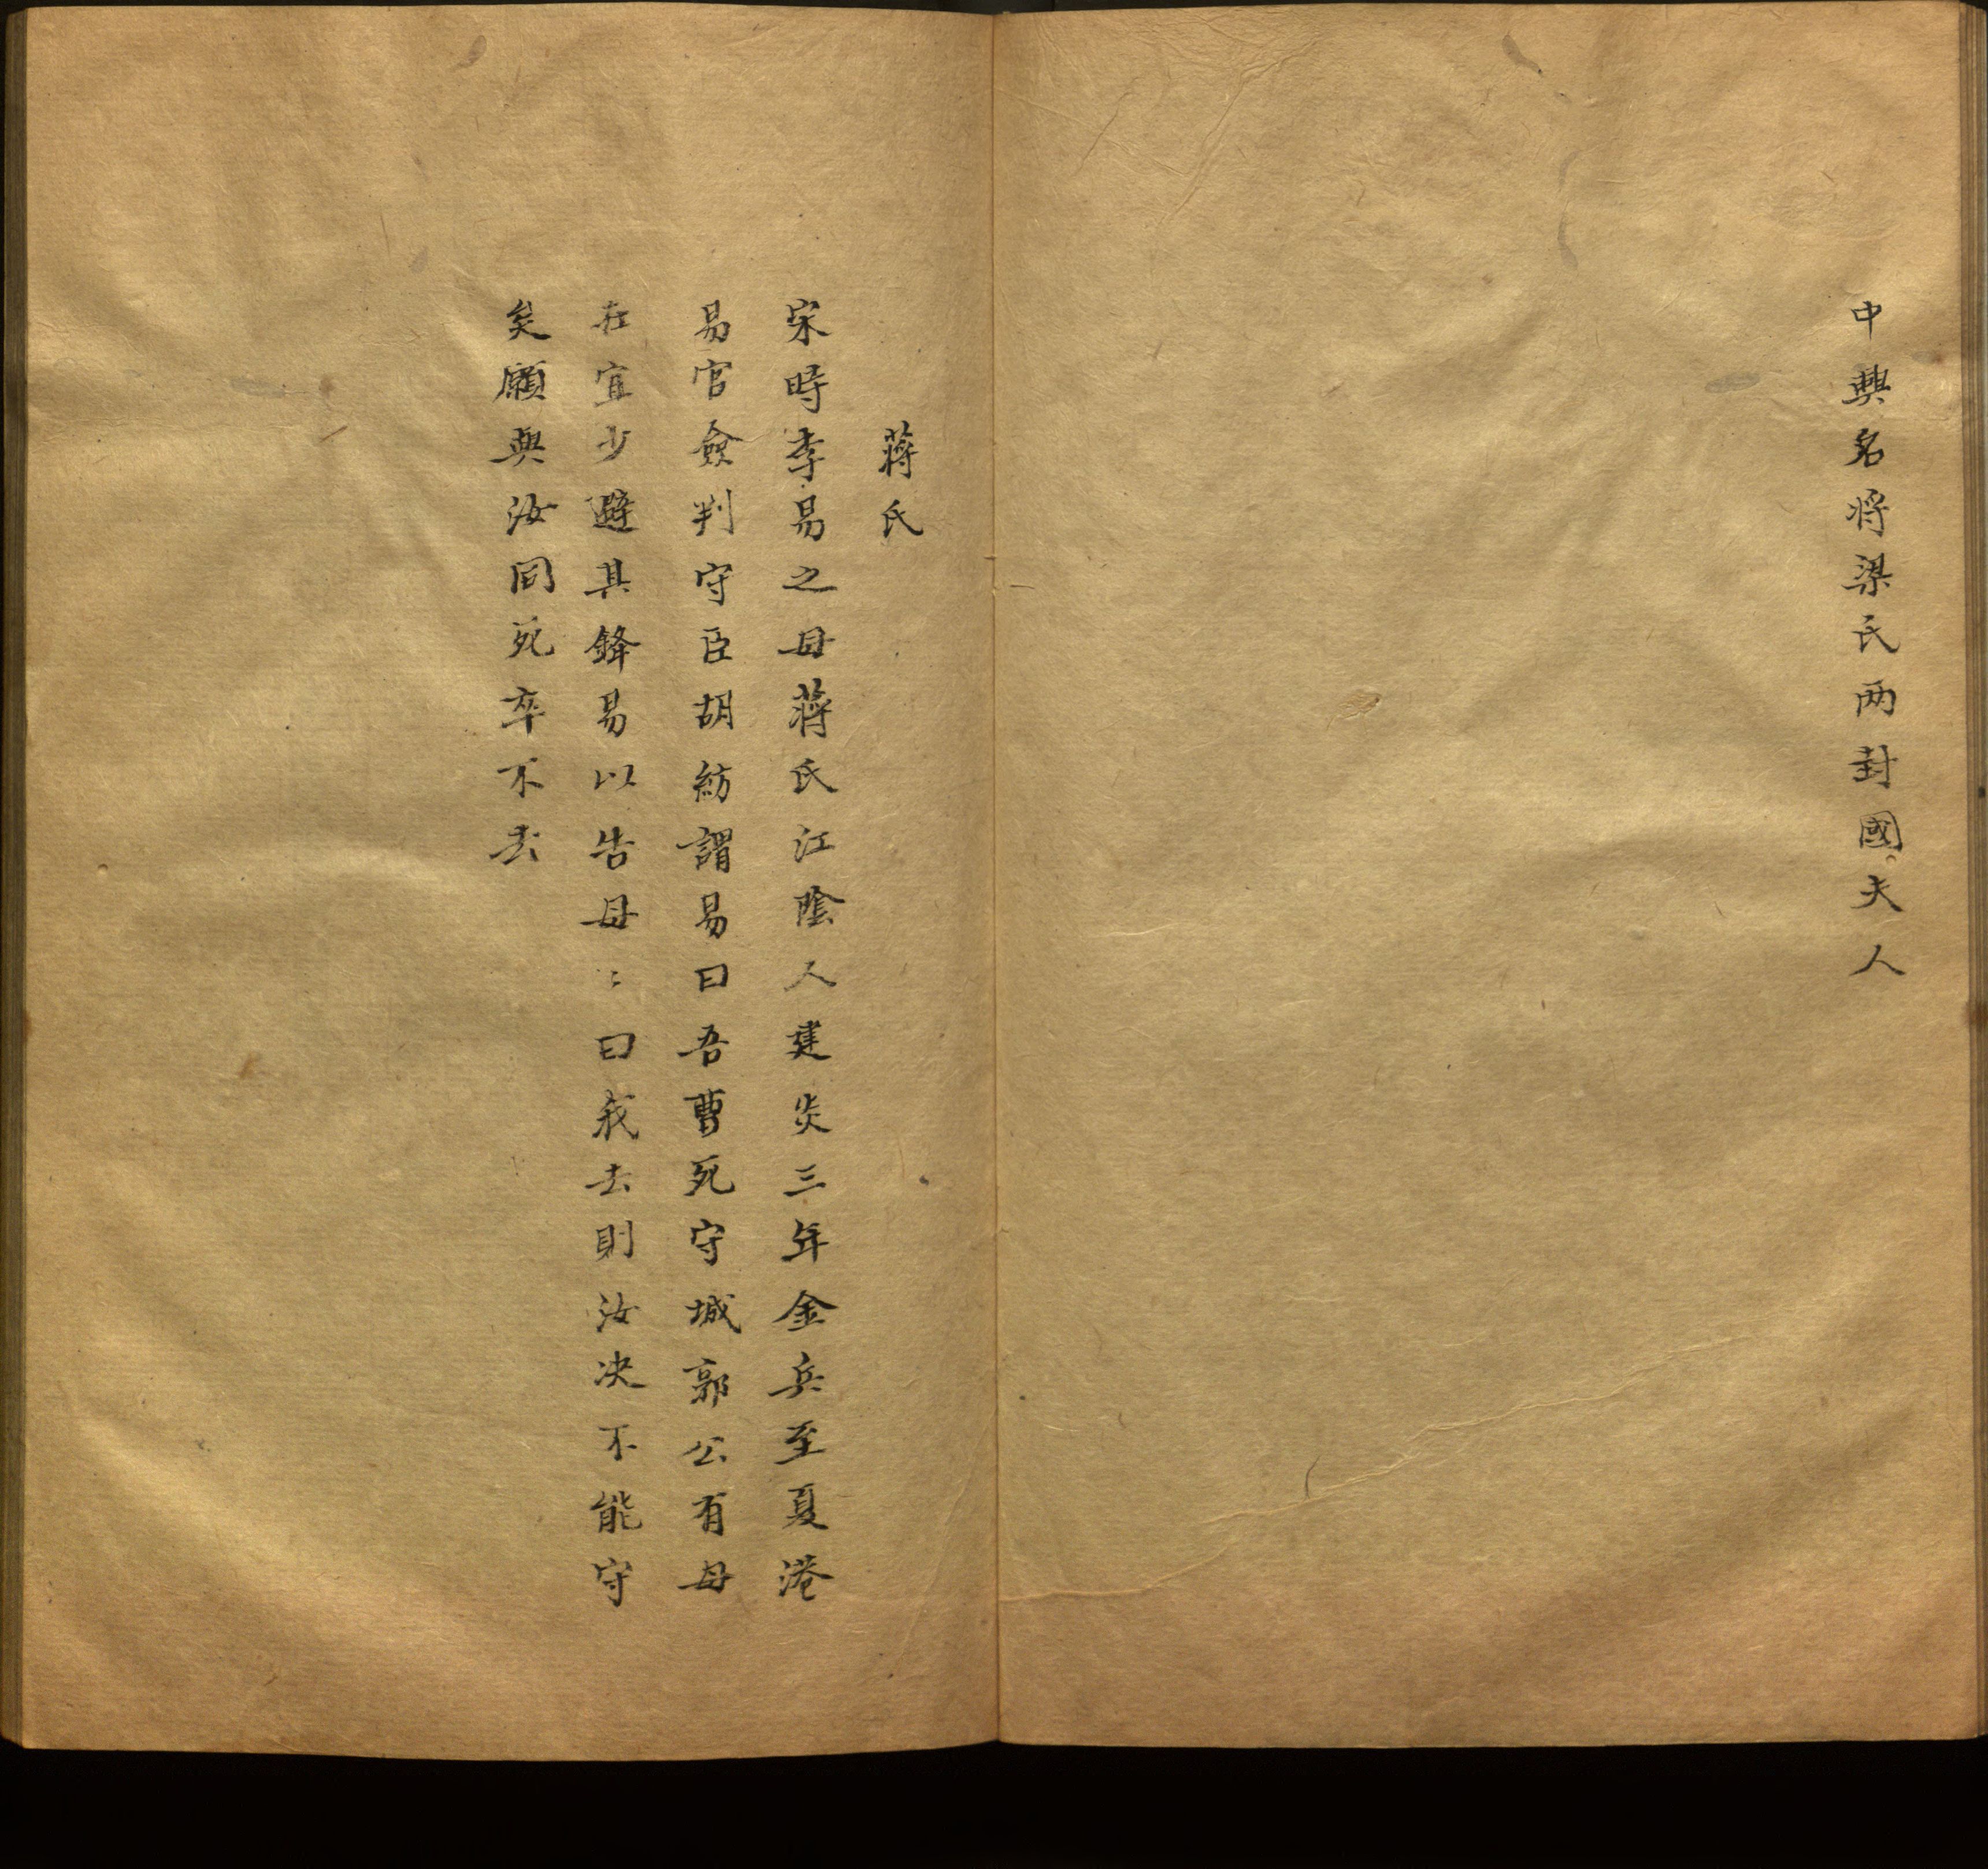 中興名将梁氏两封國夫人
蔣氏
宋時李易之母蔣氏江陰人建炎三年金兵至夏港
易官僉判守臣胡紡謂易曰吾曹死守城郭公有母
在宜少避其鋒易以告母〻曰我去則汝决不能守
矣願與汝同死卒不去